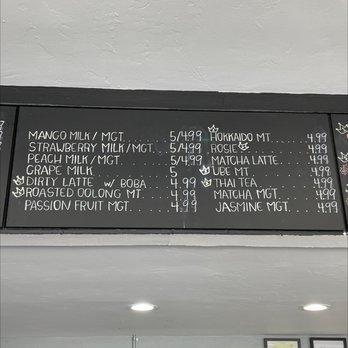 MANGO MILK / MGT. 5/4.99
STRAWBERRY MILK/MGT. 5/4.99
PEACH MILK / MGT. 5/4.99
GRAPE MILK 5
DIRTY LATTE w/ BOBA 4.99
ROASTED OOLONG MT. 4.99
PASSION FRUIT MGT. 4.99
HOKKAIDO MT. 4.99
ROSIE 4.99
MATCHA LATTE 4.99
UBE MT 4.99
THAI TEA 4.99
MATCHA MGT. 4.99
JASMINE MGT. 4.99